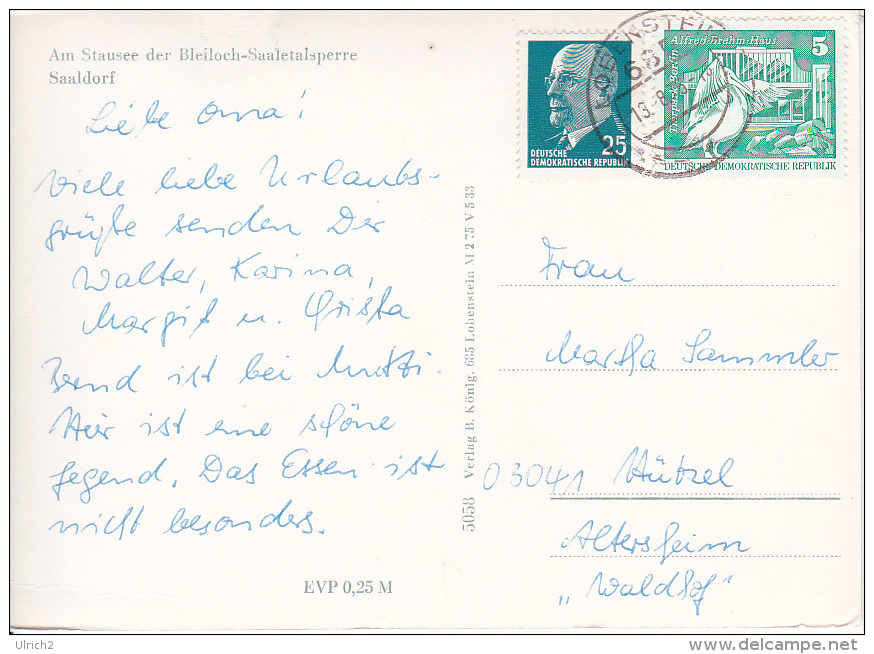 Am Stausee der Bleiloch-Saaletalsperre
Saaldorf
Liebe Oma!
Viele liebe Urlaubs-
grüße senden Dir
Walter, Karina,
Margit u. Christa
Bernd ist bei Mutti.
Hier ist eine schöne
Gegend. Das Essen ist
nicht besonders.
EVP 0,25 M
5058 Verlag B. König, 685 Lobenstein M 2 75 V 5 33
DEUTSCHE
DEMOKRATISCHE REPUBLIK
25
Alfred-Brehm-Haus
5
Tierpark Berlin
DEUTSCHE DEMOKRATISCHE REPUBLIK
LOBENSTEIN
Frau
Martha Sammler
03041 Hützel
Altersheim
„Waldhof"
Ulrich2
www.delcampe.net